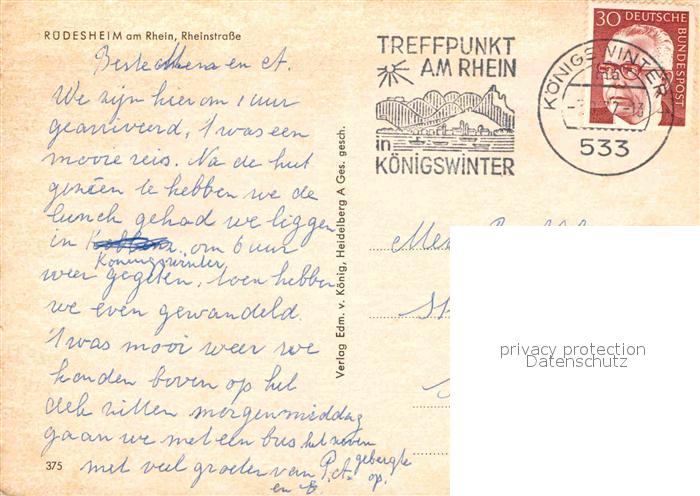 RÜDESHEIM am Rhein, Rheinstraße
Beste en A.
We zijn hier om 1 uur
gearriveerd, 't was een
mooie reis. Na de hut
gezien te hebben we de
lunch gehad we liggen
in om 6 uur
Koningswinter
weer gegeten, toen hebben
we even gewandeld.
't was mooi weer we
konden boven op het
dek zitten morgenmiddag
gaan we met een bus het zeven
gebergte
op.
met veel groeten van P. A.
en
375
Verlag Edm. v. König, Heidelberg A Ges. gesch.
TREFFPUNKT
AM RHEIN
in
KÖNIGSWINTER
KÖNIGSWINTER 1
533
30 DEUTSCHE
BUNDESPOST
privacy protection
Datenschutz